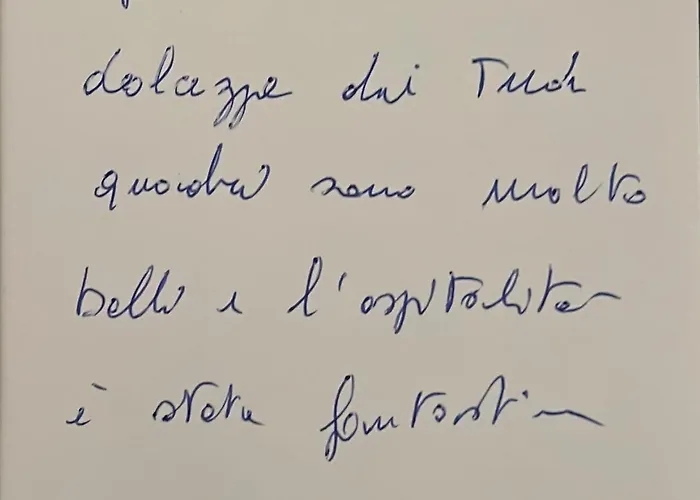 dolcezze dai Tuoi
quadri sono molto
belli e l'ospitalità
è stata fantastica